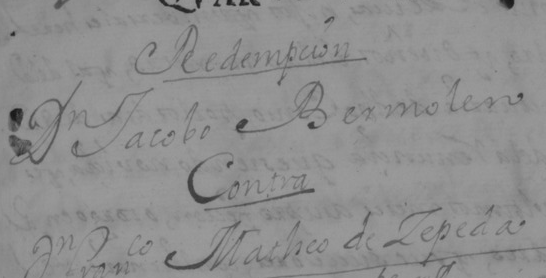 Redempción
Dn Jacobo Bermolen
Contra
Dn Franco Matheo de Zepeda